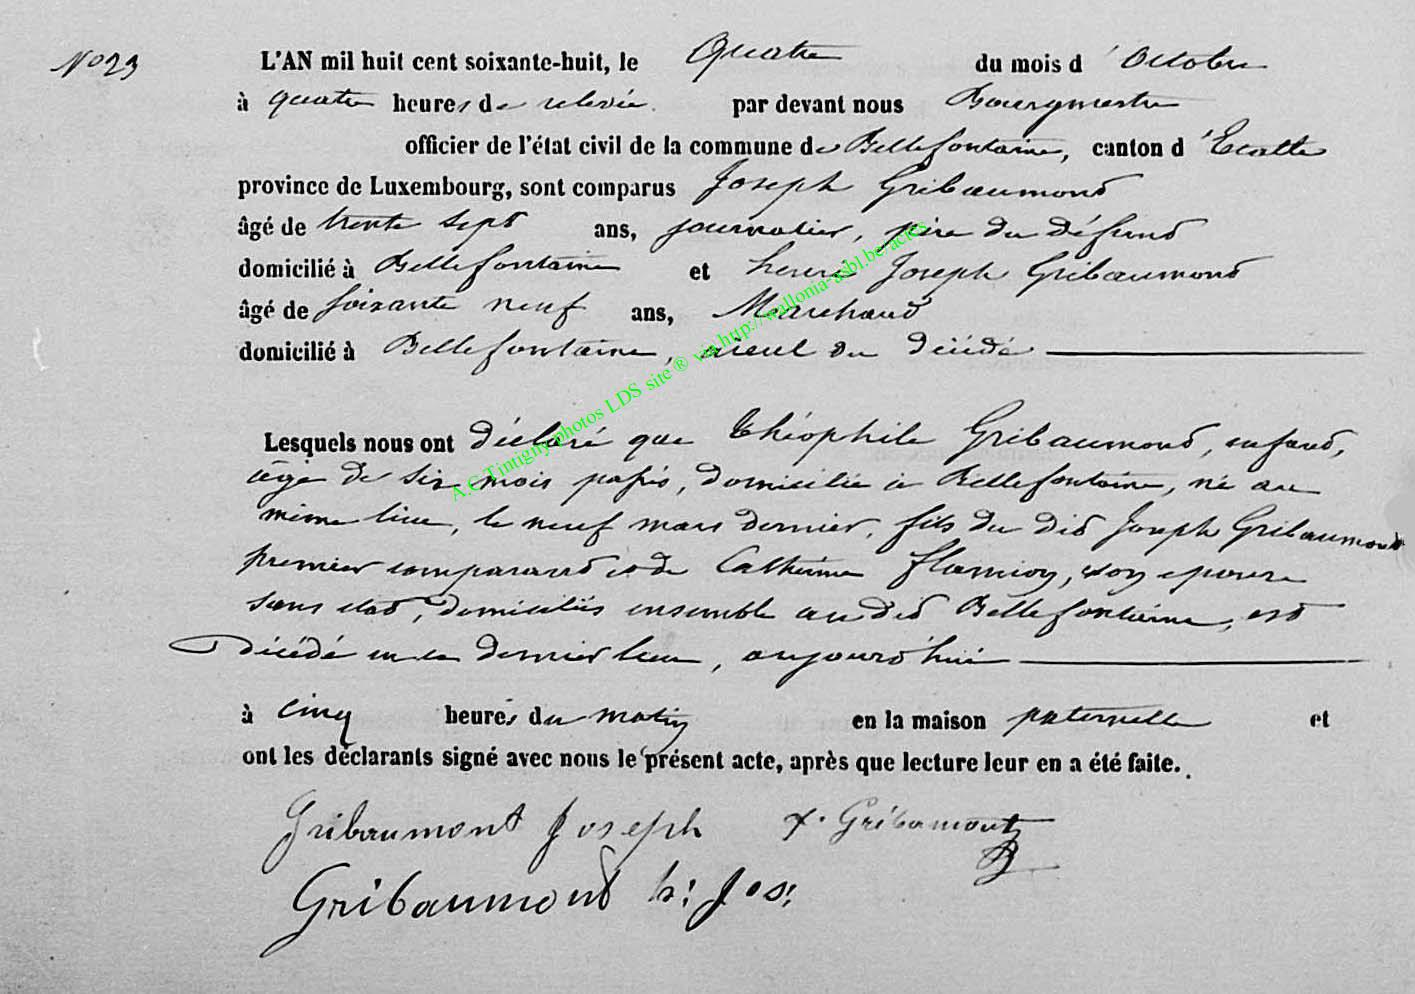 N° 23
L'AN mil huit cent soixante-huit, le Quatre du mois d'Octobre
à quatre heures de relevée. par devant nous Bourgmestre
officier de l'état civil de la commune de Bellefontaine, canton d'Etalle
province de Luxembourg, sont comparus Joseph Gribaumond
âgé de trente sept ans, journalier, père du défund
domicilié à Bellefontaine et henri Joseph Gribaumond
âgé de soixante neuf ans, Marchand
domicilié à Bellefontaine, aïeul du décédé
Lesquels nous ont déclaré que théophile Gribaumond, enfand,
âgé de six mois passés, domicilié à Bellefontaine, né au
même lieu, le neuf mars dernier, fils du did Joseph Gribaumond
premier comparand et de Catherine flamion, son epouse
sans etad, domiciliés ensemble au did Bellefontaine, est
Décédé en ce dernier lieu, aujourd'hui
à cinq heures du matin en la maison paternelle et
ont les déclarants signé avec nous le présent acte, après que lecture leur en a été faite.
Gribaumont Joseph x. Gribomont
Gribaumond h: Jos:
A.C. Tintigny photos LDS site ® via http://wallonia-asbl.be/actes